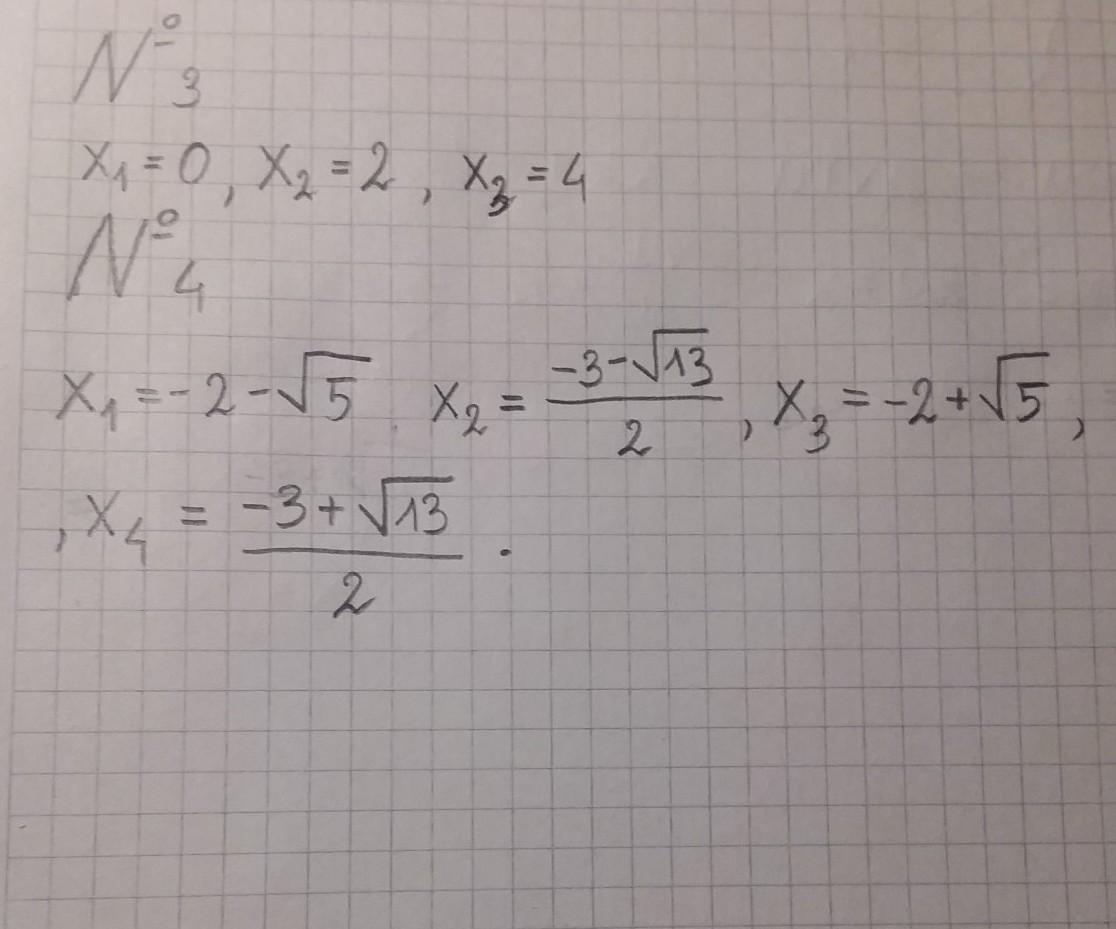 № 3
x₁ = 0, x₂ = 2, x₃ = 4
№ 4
x₁ = -2 - √5 x₂ = (-3 - √13)/2, x₃ = -2 + √5,
, x₄ = (-3 + √13)/2.